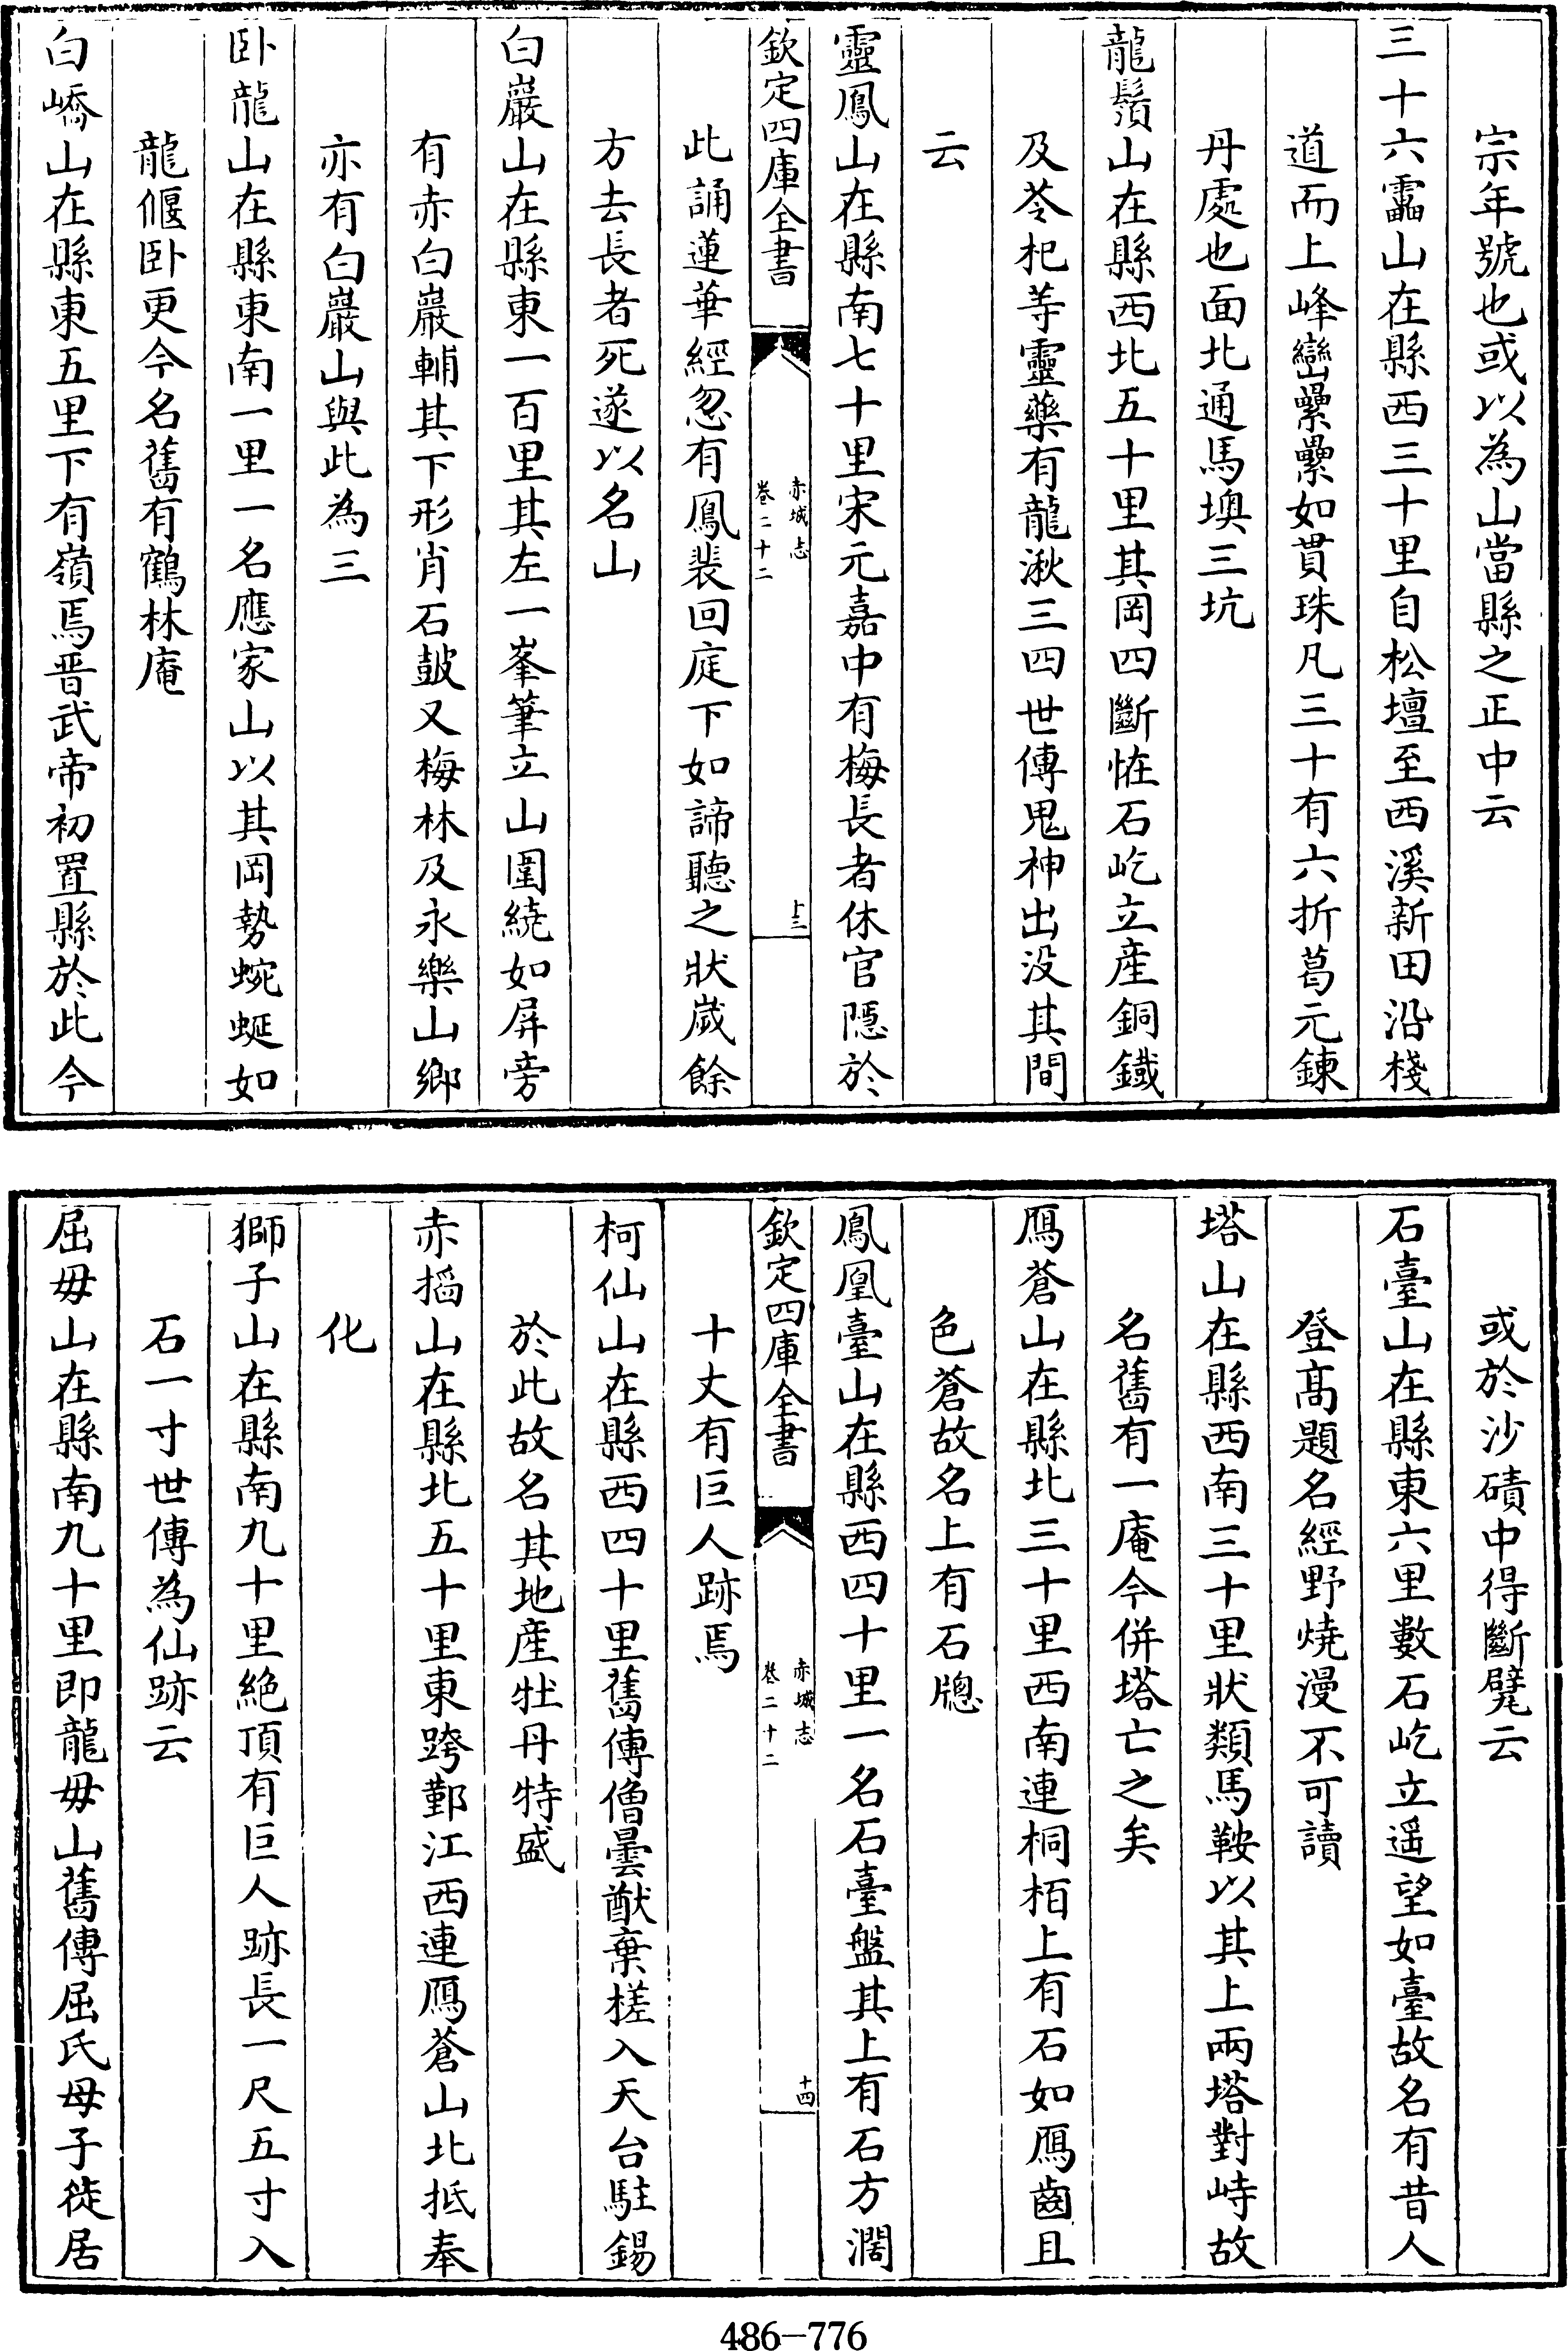 宗年號也或以為山當縣之正中云
三十六靁山在縣西三十里自松壇至西溪新田沿棧
道而上峰巒纍纍如貫珠凡三十有六折葛元鍊
丹處也面北通馬墺三坑
龍鬚山在縣西北五十里其岡四斷恠石屹立産銅鐵
及苓杞等靈藥有龍湫三四世傳鬼神出没其間
云
靈鳳山在縣南七十里宋元嘉中有梅長者休官隱於
欽定四庫全書
赤城志
卷二十二
十三
此誦蓮華經忽有鳳裴回庭下如諦聽之狀歲餘
方去長者死遂以名山
白巖山在縣東一百里其左一峯筆立山圍繞如屏旁
有赤白巖輔其下形肖石皷又梅林及永樂山鄉
亦有白巖山與此為三
卧龍山在縣東南一里一名應家山以其岡勢蜿蜒如
龍偃卧更今名舊有鶴林庵
白嶠山在縣東五里下有嶺焉晋武帝初置縣於此今
或於沙磧中得斷甓云
石臺山在縣東六里數石屹立遥望如臺故名有昔人
登髙題名經野燒漫不可讀
塔山在縣西南三十里狀類馬鞍以其上兩塔對峙故
名舊有一庵今併塔亡之矣
鴈蒼山在縣北三十里西南連桐栢上有石如鴈齒且
色蒼故名上有石牕
鳳凰臺山在縣西四十里一名石臺盤其上有石方濶
欽定四庫全書
赤城志
卷二十二
十四
十丈有巨人跡焉
柯仙山在縣西四十里舊傳僧曇猷棄槎入天台駐錫
於此故名其地産牡丹特盛
赤搯山在縣北五十里東跨鄞江西連鴈蒼山北抵奉
化
獅子山在縣南九十里絶頂有巨人跡長一尺五寸入
石一寸世傳為仙跡云
屈毋山在縣南九十里即龍毋山舊傳屈氏母子徙居
486-776